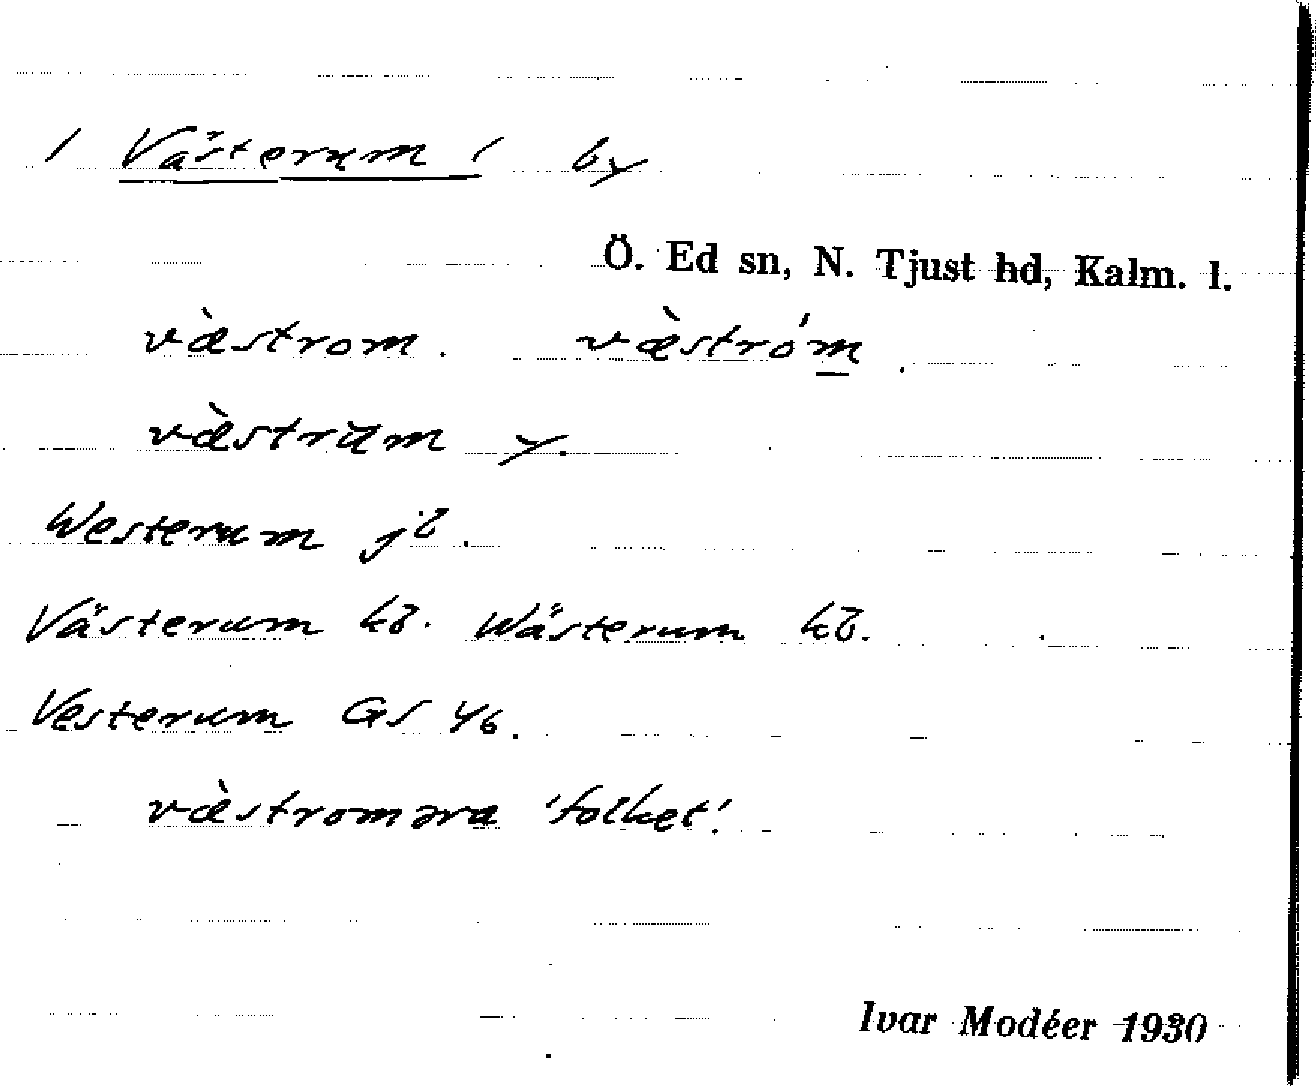 / Västerum / by
Ö. Ed sn, N. Tjust hd, Kalm. l.
væ̀strom. væ̀stróm.
væ̀strum y.
Westerum jb.
Västerum kb. Wästerum kb.
Vesterum GS 46.
væ̀stroməra 'folket'.
Ivar Modéer 1930